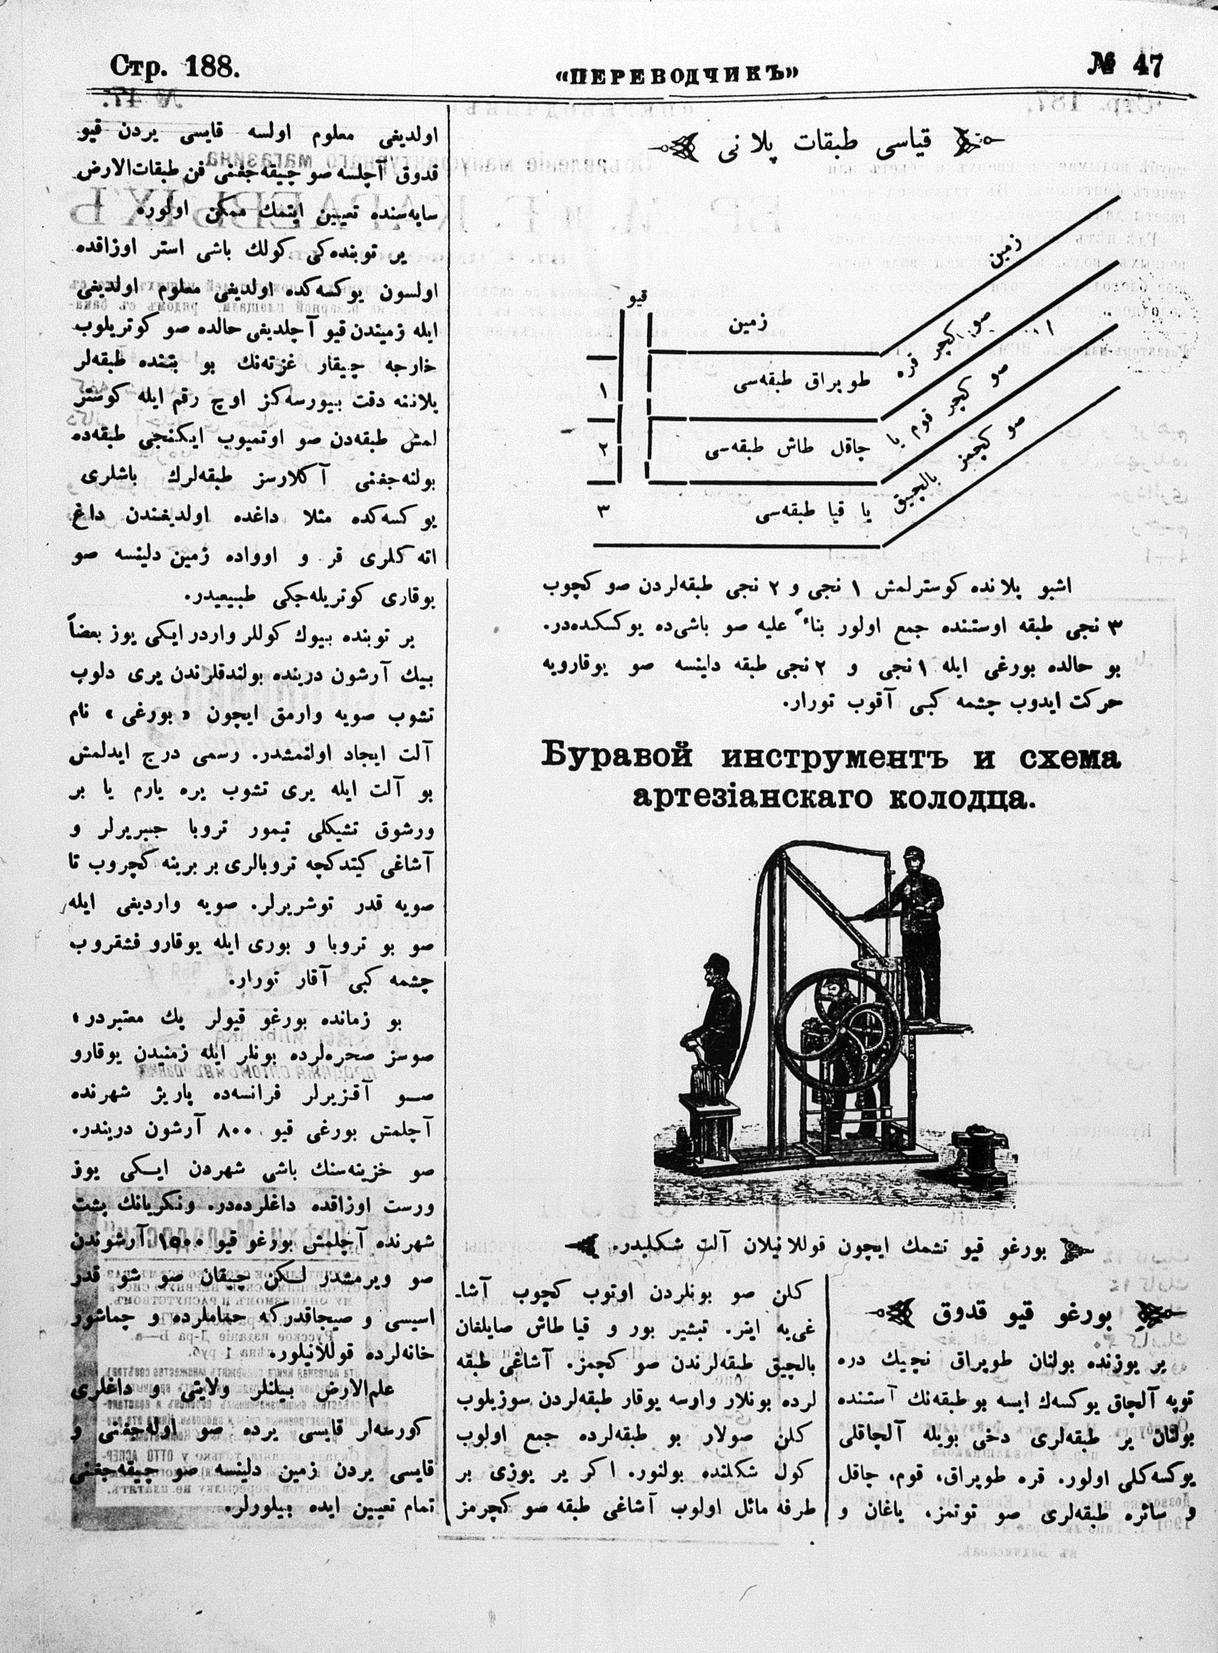 Стр. 188.
«ПЕРЕВОДЧИКЪ»
№ 47
قیاسی طبقات پلانی
زمین
قیو
زمین
صو کچر قره
۱
طوپراق طبقه‌سی
صو کچر قوم یا
۲
چاقل طاش طبقه‌سی
صو کچمز بالچیق
۳
یا قیا طبقه‌سی
اشبو پلانده کوسترلمش ۱ نجی و ۲ نجی طبقه‌لردن صو کچوب
۳ نجی طبقه اوستنده جمع اولور بناءً علیه صو باشی‌ده یوکسکده‌در.
بو حالده بورغی ایله ۱ نجی و ۲ نجی طبقه دلینسه صو یوقارویه
حرکت ایدوب چشمه کبی آقوب تورار.
Буравой инструментъ и схема
артезіанскаго колодца.
بورغو قیو تشمك ایچون قوللانیلان آلت شکلیدر.
بورغو قیو قدوق
یر یوزنده بولنان طوپراق نچیك دره
توپه آلچاق یوکسه‌ك ایسه بو طبقه‌نك آستنده
بولنان یر طبقه‌لری دخی بویله آلچاقلی
یوکسه‌کلی اولور. قره طوپراق، قوم، چاقل
و سائره طبقه‌لری صو توتمز، یاغان و
کلن صو بونلردن اوتوب کچوب آشا-
غی‌یه اینر. تبشیر بور و قیا طاش صایلفان
بالچیق طبقه‌لرندن صو کچمز. آشاغی طبقه
لرده بونلار وارسه یوقار طبقه‌لردن سوزیلوب
کلن صولار بو طبقه‌لرده جمع اولوب
کول شکلنده بولنور. اکر یر یوزی بر
طرفه مائل اولوب آشاغی طبقه صو کچرمز
اولدیغی معلوم اولسه قایسی یردن قیو
قدوق آچلسه صو چیقه‌جغنی فن طبقات‌الارض
سایه‌سنده تعیین ایتمك ممکن اولوره
یر توبنده‌کی کولك باشی استر اوزاقده
اولسون یوکسه‌کده اولدیغی معلوم اولدیغی
ایله زمیندن قیو آچلدیغی حالده صو کوتریلوب
خارجه چیقار غزته‌نك بو بتنده طبقه‌لر
پلاننه دقت بیورسه‌کز اوچ رقم ایله کوستر
لمش طبقه‌دن صو اوتمیوب ایکنجی طبقه‌ده
بولنه‌جغنی آکلارسز طبقه‌لرك باشلری
یوکسه‌کده مثلا داغده اولدیغندن داغ
اته‌کلری قر و اوواده زمین دلینسه صو
یوقاری کوتریله‌جکی طبیعیدر.
یر توبنده بیوك کوللر واردر ایکی یوز بعضاً
بیك آرشون درینده بولندقلرندن یری دلوب
تشوب صویه وارمق ایچون «بورغی» نام
آلت ایجاد اولنمشدر. رسمی درج ایدلمش
بو آلت ایله یری تشوب یره یارم یا بر
ورشوق تشیکلی تیمور تروبا جیبریرلر و
آشاغی کیتدکچه تروبالری بر برینه کچروب تا
صویه قدر توشریرلر. صویه واردیغی ایله
صو بو تروبا و بوری ایله یوقارو فشقروب
چشمه کبی آقار تورار.
بو زمانده بورغو قیولر پك معتبردر؛
صوسز صحره‌لرده بونلر ایله زمنیدن یوقارو
صو آقزیرلر فرانسه‌ده پاریژ شهرنده
آچلمش بورغی قیو ۸۰۰ آرشون دریندر.
صو خزینه‌سنك باشی شهردن ایکی یوز
ورست اوزاقده داغلرده‌در. ونکریانك پشت
شهرنده آچلمش بورغو قیو ۱۵۰۰ آرشوندن
صو ویرمشدر لکن چیقان صو شو قدر
اسیسی و صیجاقدرکه حماملرده و چماشور
خانه‌لرده قوللانیلور.
علم‌الارض بیلنلر ولایتی و داغلری
کورمه‌لر قایسی یرده صو اوله‌جغنی و
قایسی یردن زمین دلینسه صو چیقه‌جغنی
تمام تعیین ایده بیلورلر.